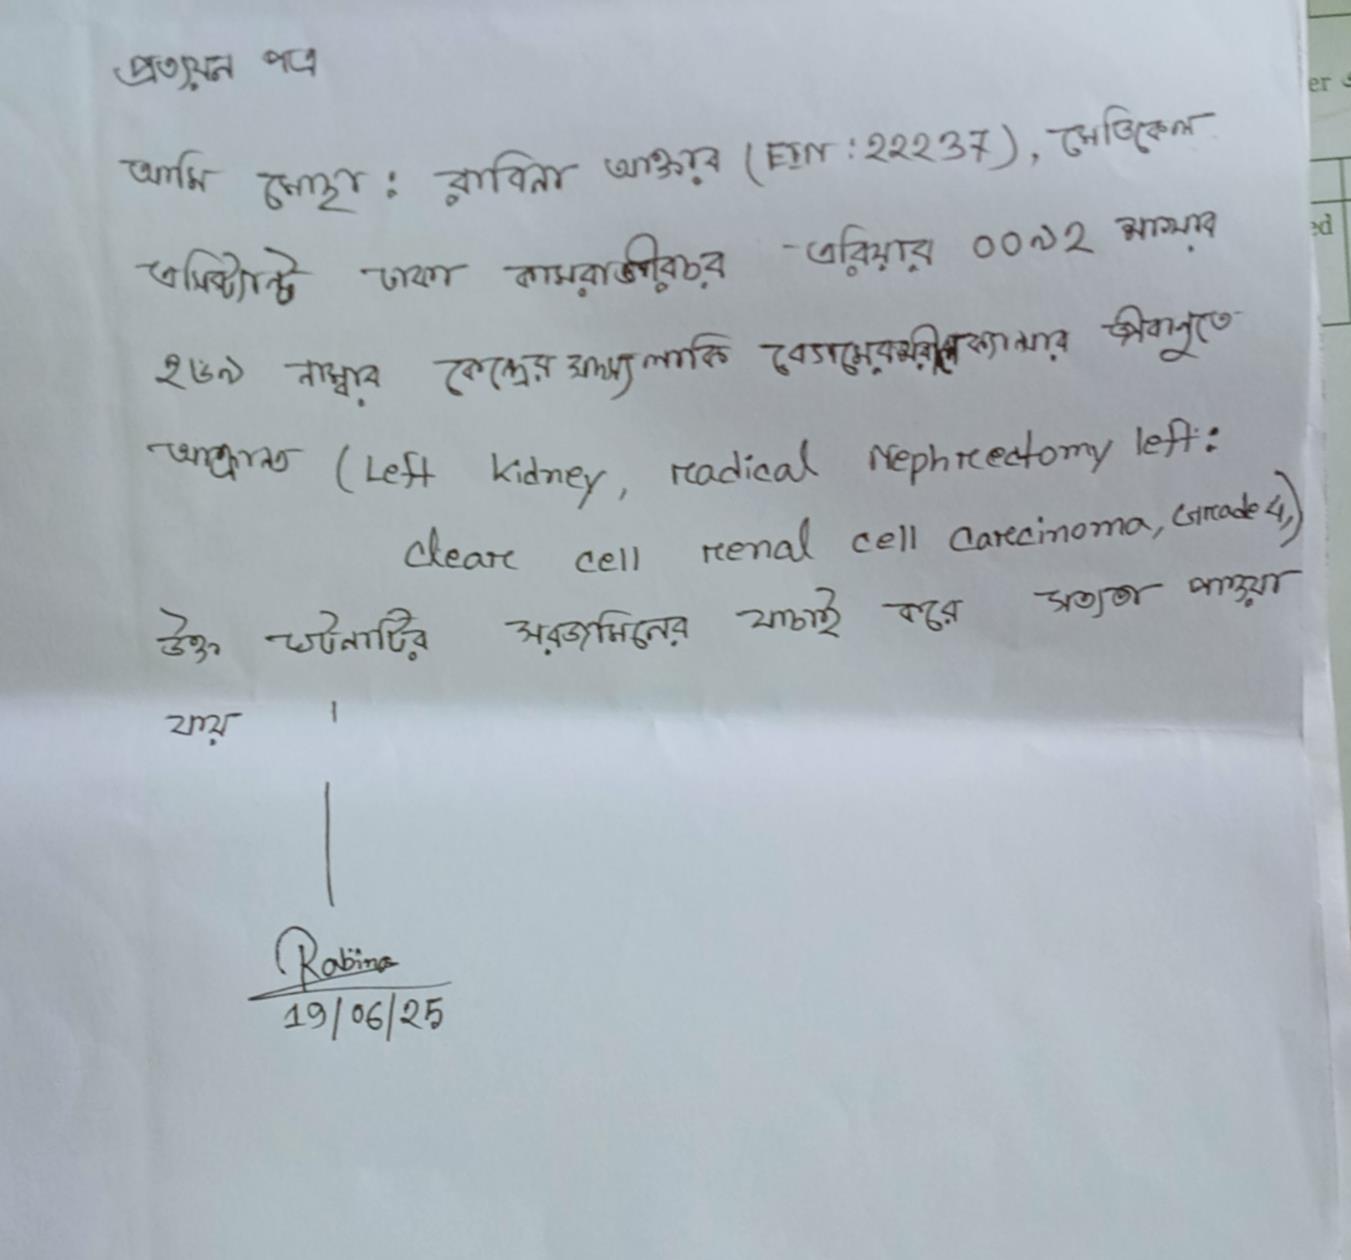 প্রত্যয়ন পত্র
আমি মোছা: রাবিনা আক্তার (EIN : 22237), মেডিকেল
এসিস্ট্যান্ট ঢাকা কামরাঙ্গীরচর এরিয়ার ০০৯২ শাখার
২৬৯ নাম্বার কেন্দ্রের সদস্য লাকি বেগমের ক্যান্সার জীবানুতে
আক্রান্ত (Left kidney, radical Nephrectomy left:
clear cell renal cell carcinoma, Grade 4,)
উক্ত ঘটনাটির সরজমিনের যাচাই করে সত্যতা পাওয়া
যায় ।
Rabina
19/06/25
er
ed